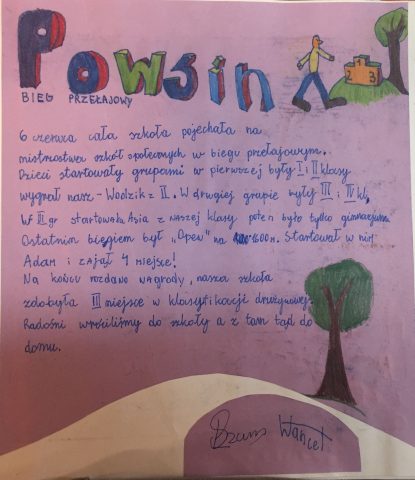 Powsin
BIEG PRZEŁAJOWY
1 2 3
6 czerwca cała szkoła pojechała na
mistrzostwa szkół społecznych w biegu przełajowym.
Dzieci startowały grupami w pierwszej były I i II klasy
wygrał nasz - Wodzik z II. W drugiej grupie były III i IV kl.
W III gr startowała Asia z naszej klasy potem było tylko gimnazjum
Ostatnim biegiem był „Open" na 1600m. Startował w nim
Adam i zajął 4 miejsce!
Na końcu rozdano nagrody, nasza szkoła
zdobyła III miejsce w klasyfikacji drużynowej.
Radośni wróciliśmy do szkoły a z tam tąd do
domu.